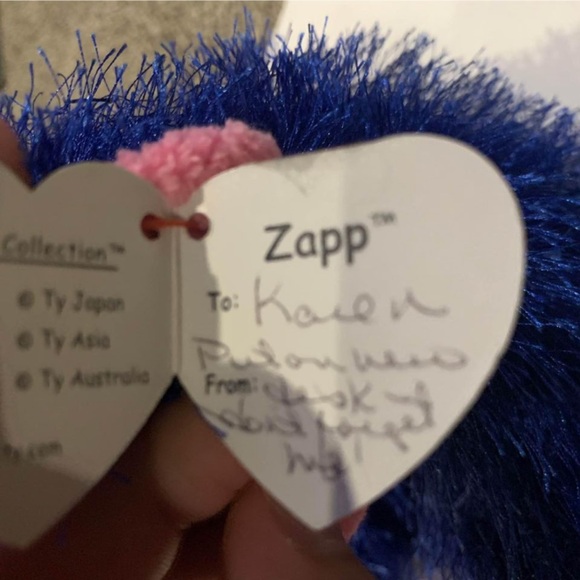 Collection™
© Ty Japan
© Ty Asia
© Ty Australia
ty.com
Zapp™
To: Karen
Put on new
From: desk &
dont forget
me!